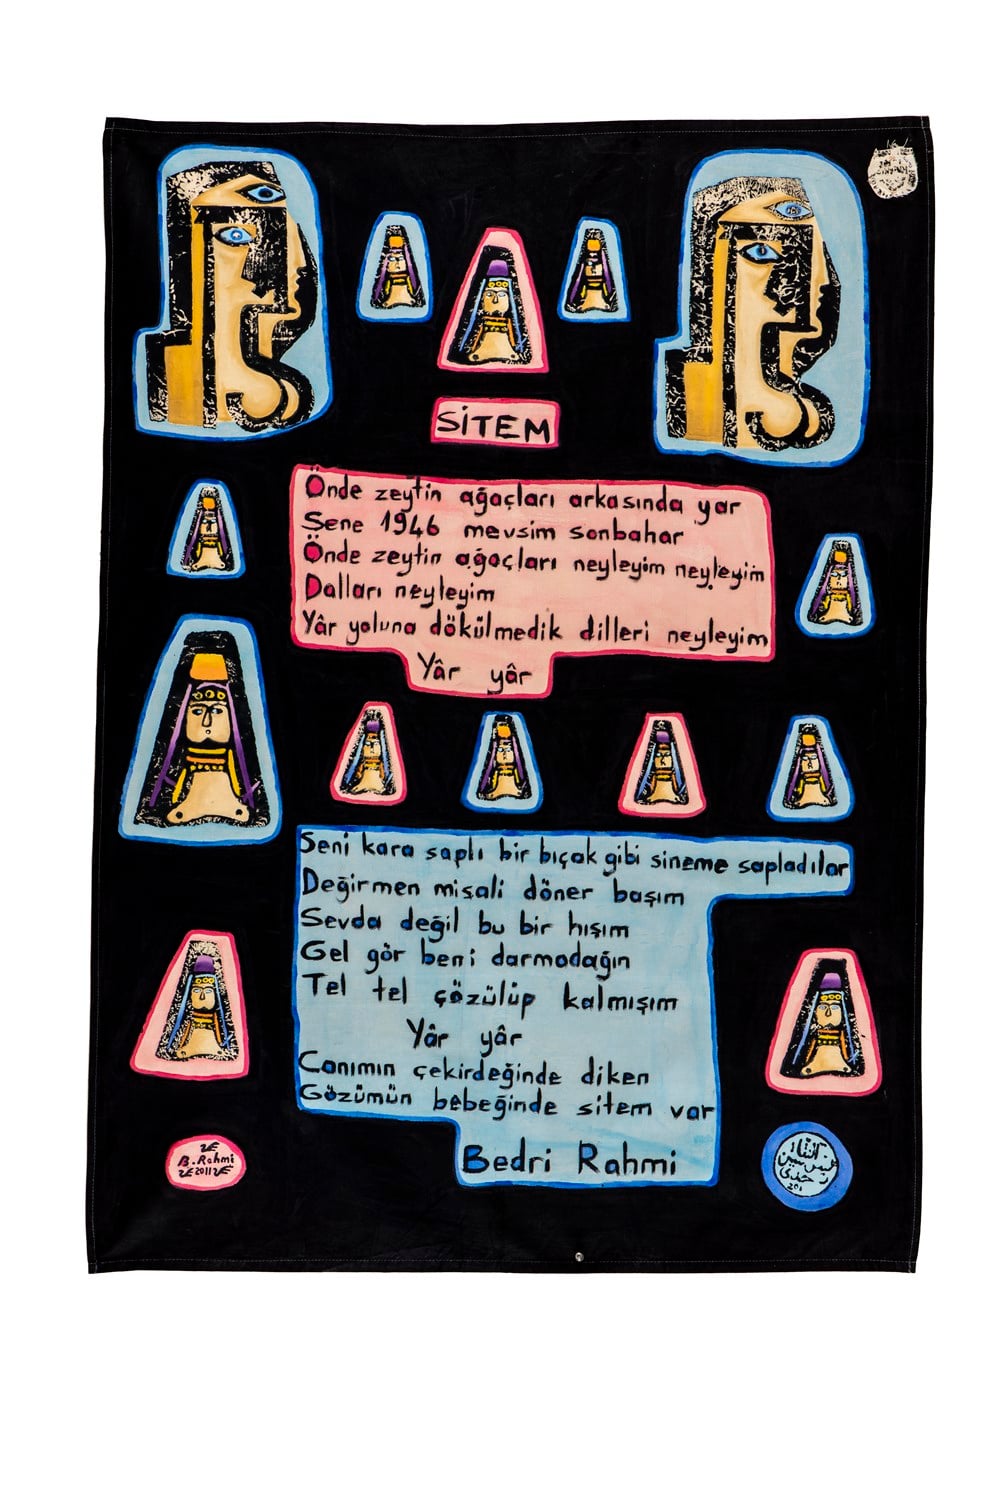 SİTEM
Önde zeytin ağaçları arkasında yar
Sene 1946 mevsim sonbahar
Önde zeytin ağaçları neyleyim neyleyim
Dalları neyleyim
Yâr yoluna dökülmedik dilleri neyleyim
Yâr yâr
Seni kara saplı bir bıçak gibi sineme sapladılar
Değirmen misali döner başım
Sevda değil bu bir hışım
Gel gör beni darmadağın
Tel tel çözülüp kalmışım
Yâr yâr
Canımın çekirdeğinde diken
Gözümün bebeğinde sitem var
Bedri Rahmi
B. Rahmi
2011